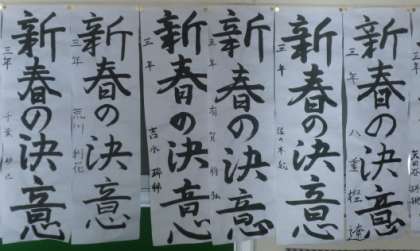 新春の決意
三年
新春の決意
三年 荒川
新春の決意
三年 吉水
新春の決意
三年 有賀
新春の決意
三年
新春の決意
三年 八重樫 遼